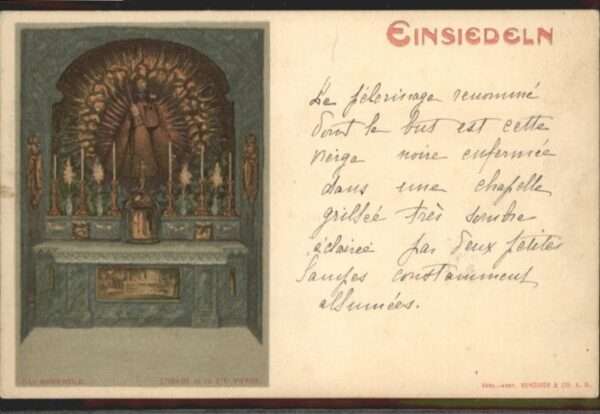 EINSIEDELN
Le pélerinage renommé
dont le but est cette
vierge noire enfermée
dans une chapelle
grillée très sombre
éclairée par deux petites
lampes constamment
allumées.
DAS GNADENBILD.
L'IMAGE DE LA STE VIERGE.
BENZIGER & CO. A. G.